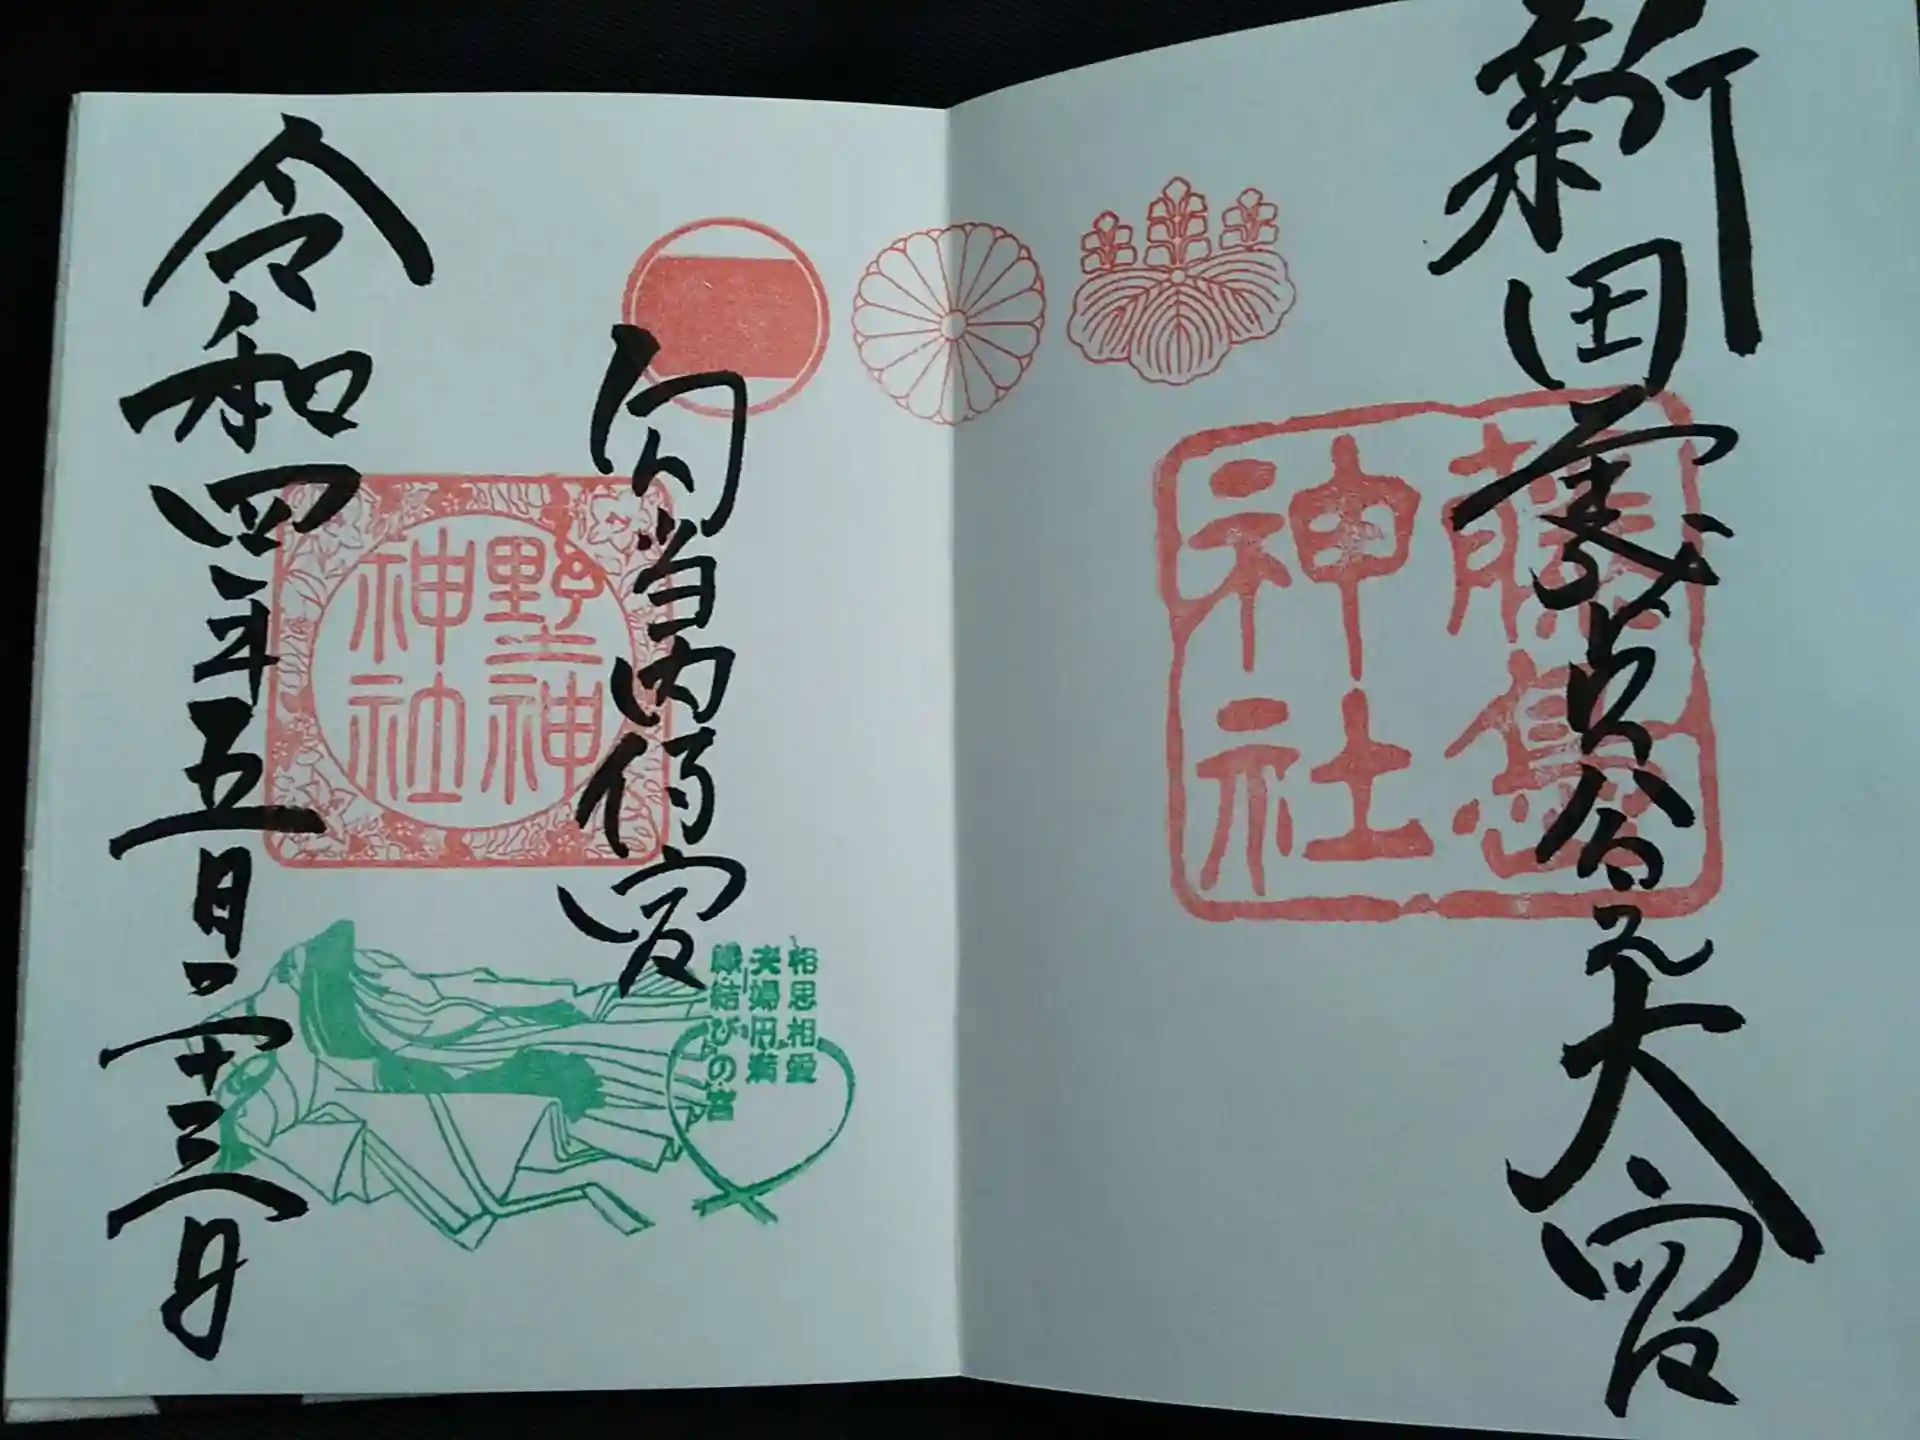 新田義貞公大宮
藤島
神社
勾当内侍宮
野神
神社
相思相愛
夫婦円満
縁結びの宮
令和四年五月二十三日